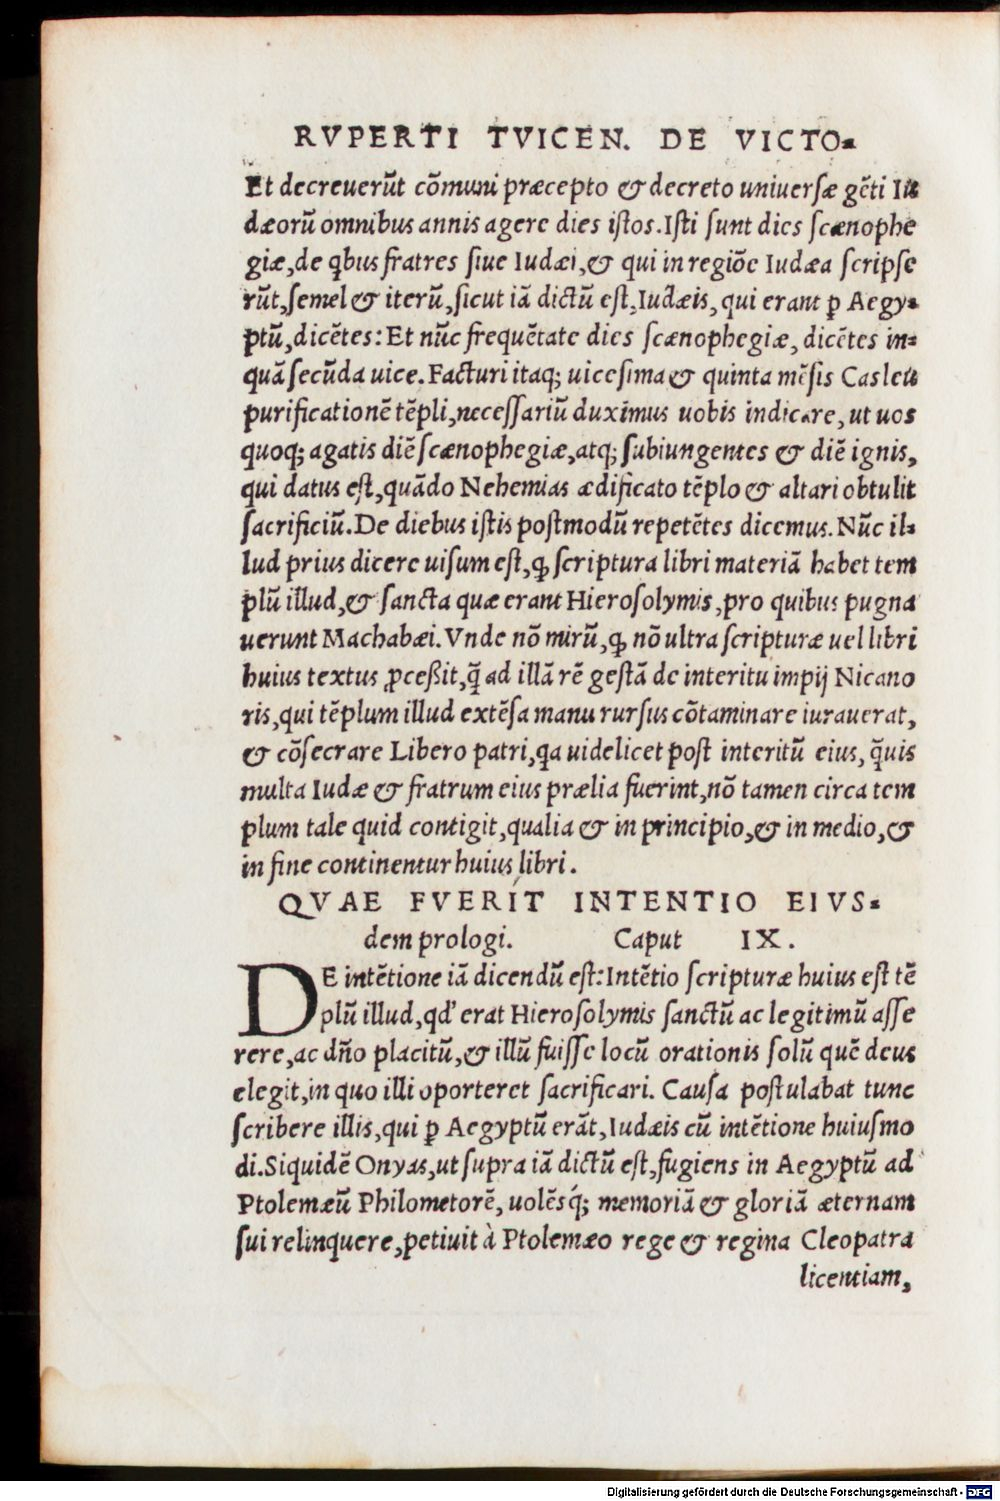 RVPERTI TVICEN. DE VICTO-
Et decreuerūt cōmuni præcepto & decreto uniuersæ gēti Iu
dæorū omnibus annis agere dies istos. Isti sunt dies scænophe
giæ, de q̃bus fratres siue Iudæi, & qui in regiōe Iudæa scripse
rūt, semel & iterū, sicut iā dictū est, Iudæis, qui erant ꝑ Aegy-
ptū, dicētes: Et nūc frequētate dies scænophegiæ, dicētes in-
quā secūda uice. Facturi itaq; uicesima & quinta mēsis Casleu
purificationē tēpli, necessariū duximus uobis indicare, ut uos
quoq; agatis diē scænophegiæ, atq; subiungentes & diē ignis,
qui datus est, quādo Nehemias ædificato tēplo & altari obtulit
sacrificiū. De diebus istis postmodū repetētes dicemus. Nūc il-
lud prius dicere uisum est, ꝙ scriptura libri materiā habet tem
plū illud, & sancta quæ erant Hierosolymis, pro quibus pugna
uerunt Machabæi. Vnde nō mirū, ꝙ nō ultra scripturæ uel libri
huius textus ꝓceßit, q̄ ad illā rē gestā de interitu impij Nicano
ris, qui tēplum illud extēsa manu rursus cōtaminare iurauerat,
& cōsecrare Libero patri, qa uidelicet post interitū eius, q̄uis
multa Iudæ & fratrum eius prælia fuerint, nō tamen circa tem
plum tale quid contigit, qualia & in principio, & in medio, &
in fine continentur huius libri.
QVAE FVERIT INTENTIO EIVS-
dem prologi. Caput IX.
DE intētione iā dicendū est: Intētio scripturæ huius est tē
plū illud, qd' erat Hierosolymis sanctū ac legitimū asse
rere, ac dño placitū, & illū fuisse locū orationis solū quē deus
elegit, in quo illi oporteret sacrificari. Causa postulabat tunc
scribere illis, qui ꝑ Aegyptū erāt, Iudæis cū intētione huiusmo
di. Siquidē Onyas, ut supra iā dictū est, fugiens in Aegyptū ad
Ptolemæū Philometorē, uolēsq́; memoriā & gloriā æternam
sui relinquere, petiuit à Ptolemæo rege & regina Cleopatra
licentiam,
Digitalisierung gefördert durch die Deutsche Forschungsgemeinschaft - DFG